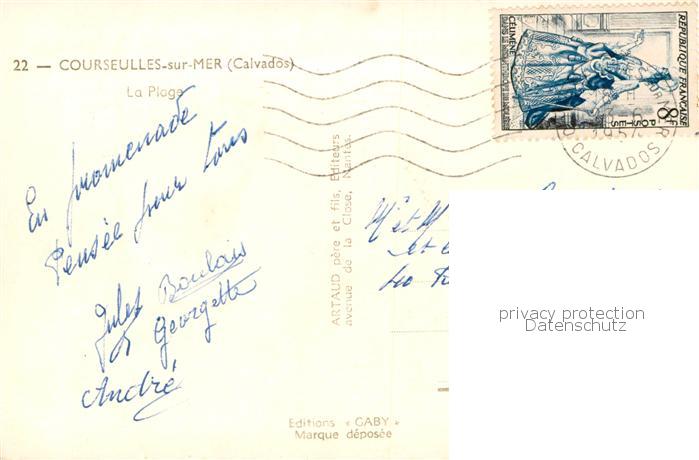 22 — COURSEULLES-sur-MER (Calvados)
La Plage
En promenade
Pensée pour tous
Jules Boulais
et Georgette
André
ARTAUD père et fils, Editeurs
avenue de la Close, Nantes.
Editions « GABY »
Marque déposée
CÉLIMÈNE
RÉPUBLIQUE FRANÇAISE
POSTES
8F
CALVADOS
Mr et M
et
privacy protection
Datenschutz